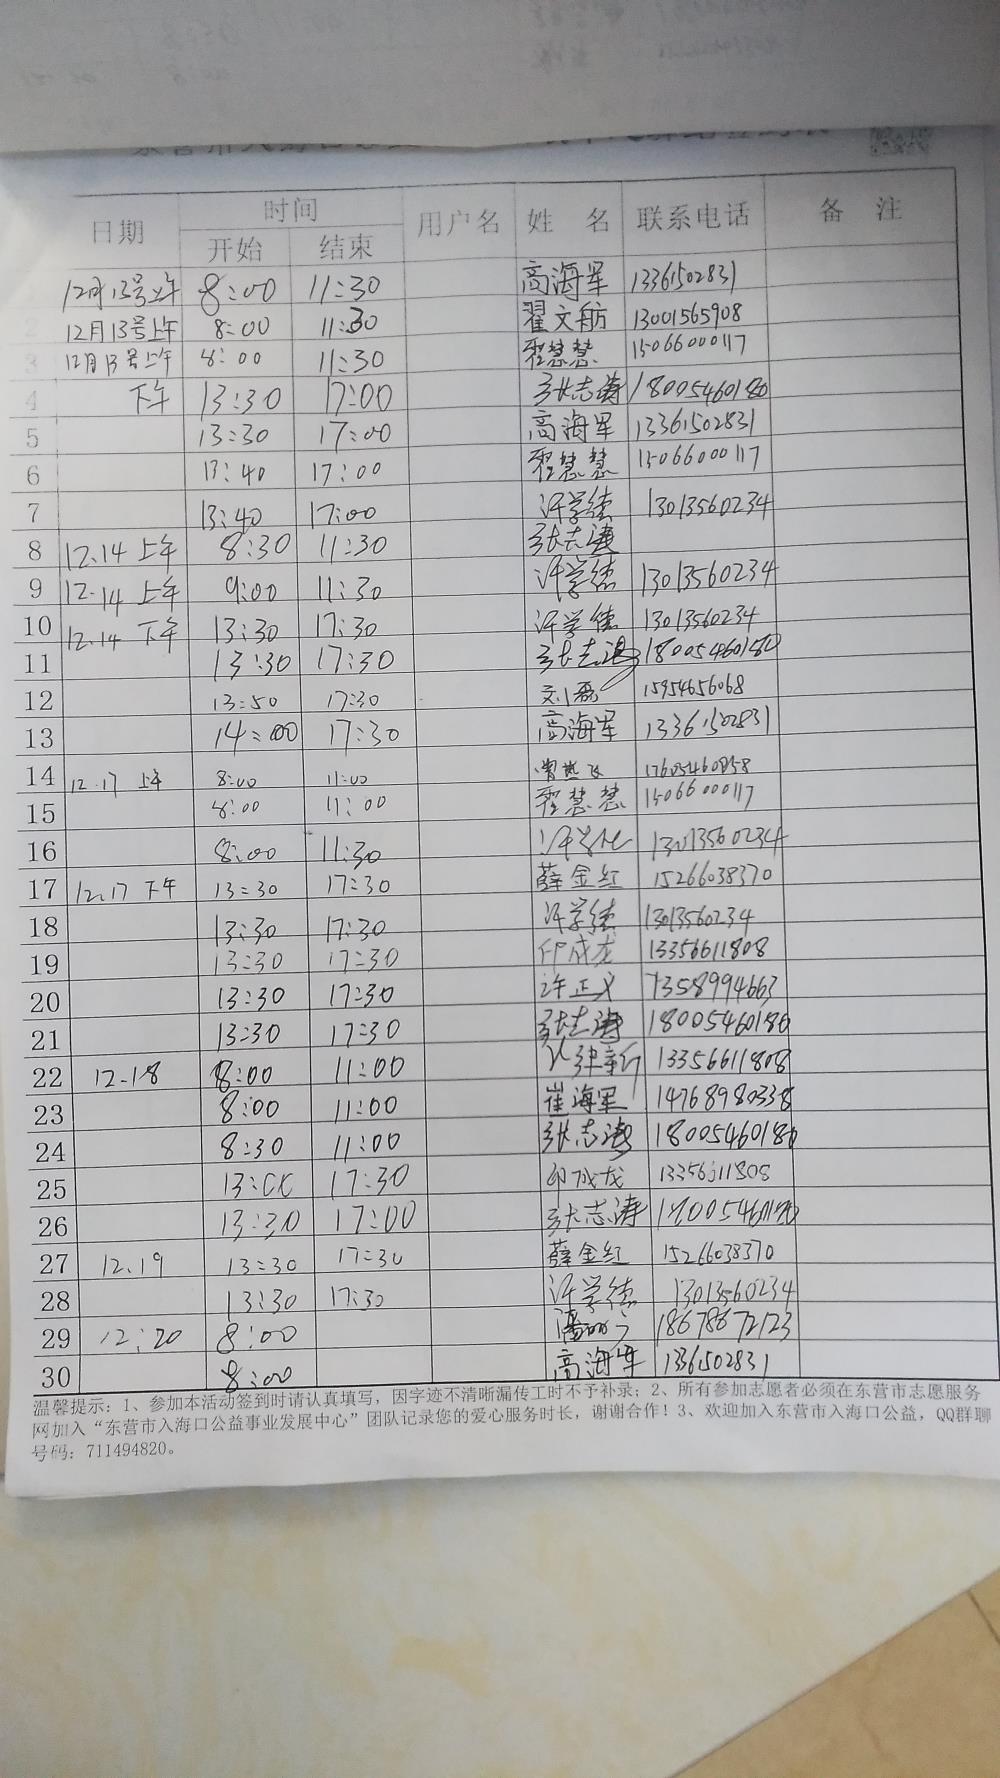 日期 时间 用户名 姓 名 联系电话 备 注
开始 结束
12月13号上午 8:00 11:30 高海军 13361502831
2 12月13号上午 8:00 11:30 翟文舫 13001565908
3 12月13号上午 8:00 11:30 翟慧慧 15066000117
4 下午 13:30 17:00 张志涛 18005460180
5 13:30 17:00 高海军 13361502831
6 13:40 17:00 翟慧慧 15066000117
7 13:40 17:00 许学德 13013560234
8 12.14 上午 8:30 11:30 张志涛
9 12.14 上午 9:00 11:30 许学德 13013560234
10 12.14 下午 13:30 17:30 许学德 13013560234
11 13:30 17:30 张志涛 18005460180
12 13:50 17:30 刘磊 15954656068
13 14:00 17:30 高海军 13361502831
14 12.17 上午 8:00 11:00
15 8:00 11:00 翟慧慧 15066000117
16 8:00 11:30 13013560234
17 12.17 下午 13:30 17:30 薛金红 15266038370
18 13:30 17:30 许学德 13013560234
19 13:30 17:30 印成龙 13356611808
20 13:30 17:30 许正义 13589994663
21 13:30 17:30 张志涛 18005460180
22 12.18 8:00 11:00 13356611808
23 8:00 11:00 崔海军 14768980338
24 8:30 11:00 张志涛 18005460180
25 17:30 印成龙 13356611808
26 13:30 17:00 张志涛 18005460180
27 12.19 13:30 17:30 薛金红 15266038370
28 13:30 17:30 许学德 13013560234
29 12:20 8:00 18678672123
30 8:00 高海军 13361502831
温馨提示：1、参加本活动签到时请认真填写，因字迹不清晰漏传工时不予补录；2、所有参加志愿者必须在东营市志愿服务
网加入“东营市入海口公益事业发展中心”团队记录您的爱心服务时长，谢谢合作！3、欢迎加入东营市入海口公益，QQ群聊
号码：711494820。